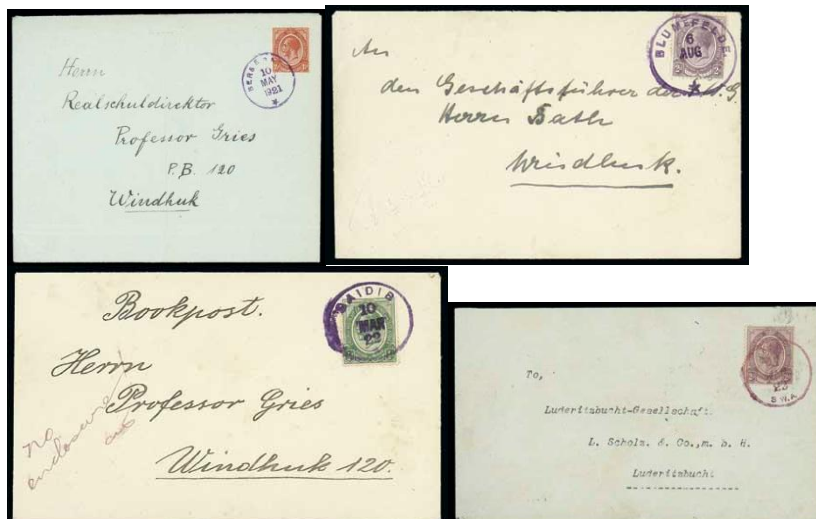 Herrn
Realschuldirektor
Professor Gries
P.B. 120
Windhuk
10
MAY
1921
An
den Geschäftsführer der
Herrn Bath
Windhuk.
BLUMFELDE
6
AUG
Bookpost.
Herrn
Professor Gries
Windhuk 120.
no
enclosure
DAIDIB
10
MAR
22
To,
Luderitzbucht-Gesellschaft.
L. Scholz. & Co.,m. b. H.
Luderitzbucht
23
S.W.A.